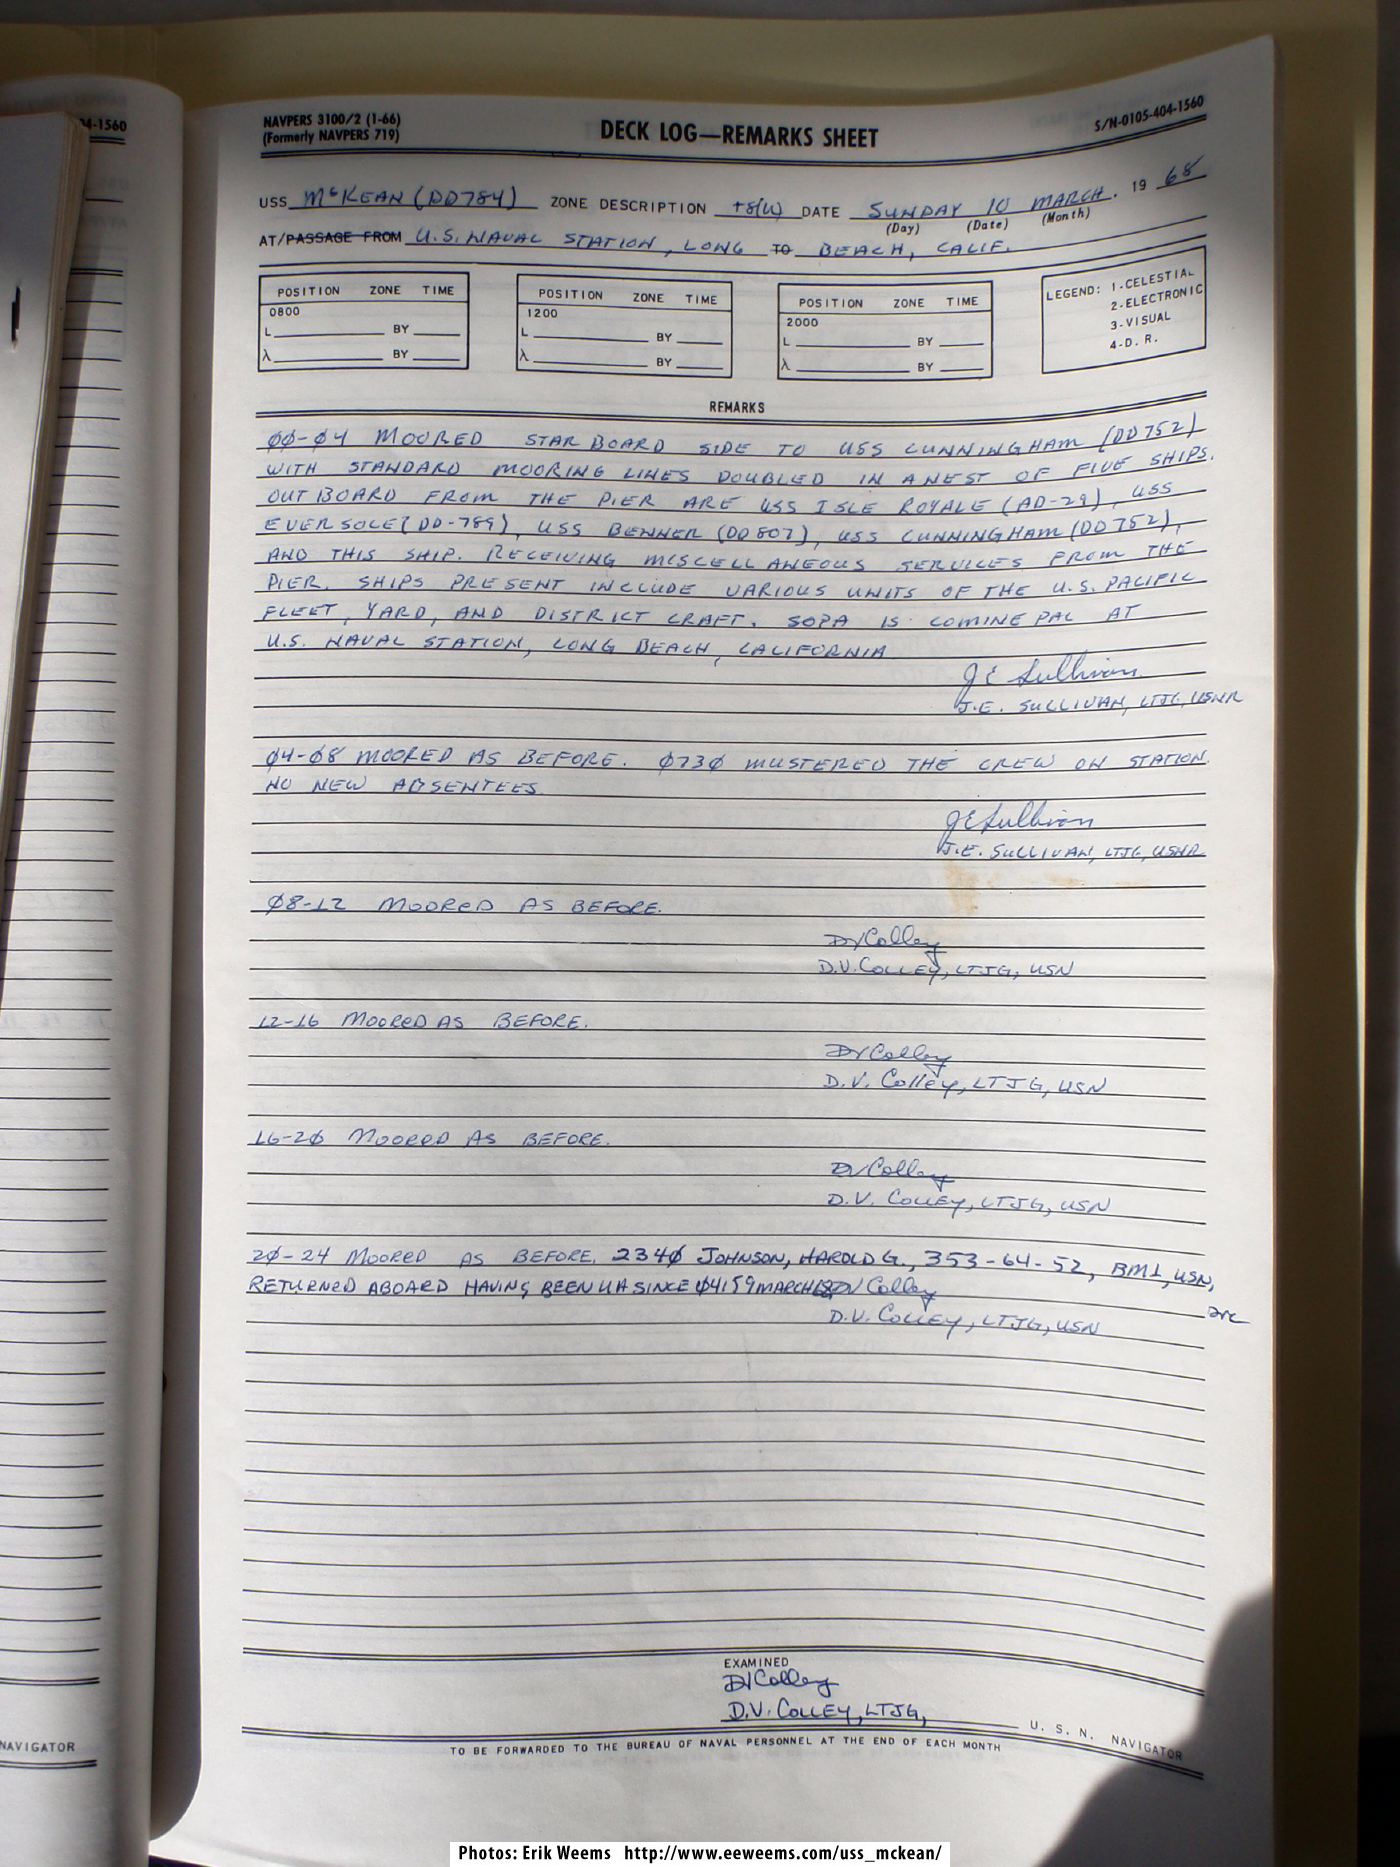 04-1560
NAVPERS 3100/2 (1-66)
(Formerly NAVPERS 719)
DECK LOG—REMARKS SHEET
S/N-0105-404-1560
USS McKEAN (DD784) ZONE DESCRIPTION +8(U) DATE SUNDAY 10 MARCH. 19 68
(Day) (Date) (Month)
AT/PASSAGE FROM U.S. NAVAL STATION, LONG TO BEACH, CALIF.
POSITION ZONE TIME
0800
L BY
λ BY
POSITION ZONE TIME
1200
L BY
λ BY
POSITION ZONE TIME
2000
L BY
λ BY
LEGEND: 1-CELESTIAL
2-ELECTRONIC
3-VISUAL
4-D. R.
REMARKS
00-04 MOORED STARBOARD SIDE TO USS CUNNINGHAM (DD752)
WITH STANDARD MOORING LINES DOUBLED IN A NEST OF FIVE SHIPS.
OUTBOARD FROM THE PIER ARE USS ISLE ROYALE (AD-29), USS
EVERSOLE (DD-789), USS BENNER (DD807), USS CUNNINGHAM (DD752),
AND THIS SHIP. RECEIVING MISCELLANEOUS SERVICES FROM THE
PIER. SHIPS PRESENT INCLUDE VARIOUS UNITS OF THE U.S. PACIFIC
FLEET, YARD, AND DISTRICT CRAFT. SOPA IS COMINEPAC AT
U.S. NAVAL STATION, LONG BEACH, CALIFORNIA
J E Sullivan
J.E. SULLIVAN, LTJG, USNR
04-08 MOORED AS BEFORE. 0730 MUSTERED THE CREW ON STATION.
NO NEW ABSENTEES
J E Sullivan
J.E. SULLIVAN, LTJG, USNR
08-12 MOORED AS BEFORE.
DV Colley
D.V. COLLEY, LTJG, USN
12-16 MOORED AS BEFORE.
DV Colley
D.V. Colley, LTJG, USN
16-20 MOORED AS BEFORE.
DV Colley
D.V. COLLEY, LTJG, USN
20-24 MOORED AS BEFORE. 2340 JOHNSON, HAROLD G., 353-64-52, BM1, USN,
RETURNED ABOARD HAVING BEEN UA SINCE 04159MARCH68 DV Colley
D.V. COLLEY, LTJG, USN
DVC
EXAMINED
DV Colley
D.V. COLLEY, LTJG,
U. S. N. NAVIGATOR
NAVIGATOR
TO BE FORWARDED TO THE BUREAU OF NAVAL PERSONNEL AT THE END OF EACH MONTH
Photos: Erik Weems http://www.eeweems.com/uss_mckean/